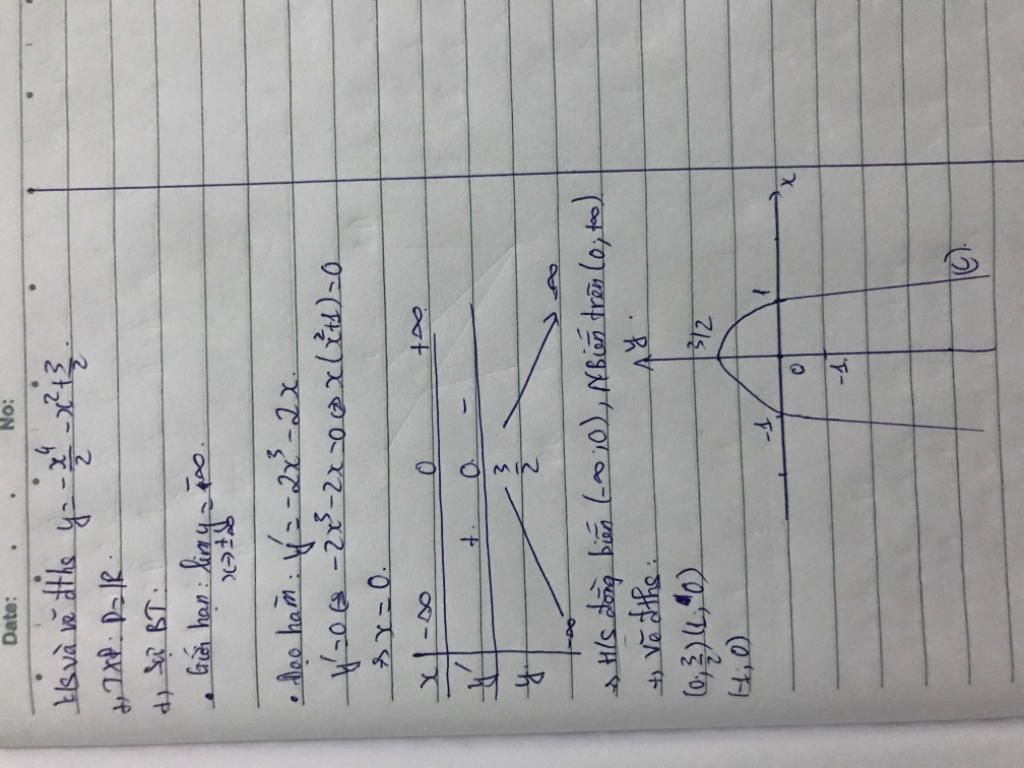 Date: No:
KS và vẽ đthc y = -x⁴/2 - x² + 3/2.
+, TXĐ: D = ℝ.
+, Sự BT:
• Giới hạn: lim y = -∞.
x→±∞
• Đạo hàm: y' = -2x³ - 2x.
y' = 0 ⇔ -2x³ - 2x = 0 ⇔ x(x²+1) = 0
⇒ x = 0.
x -∞ 0 +∞
y' + 0 -
y -∞ 3/2 -∞
→ H/s đồng biến (-∞; 0), NBiến trên (0; +∞)
+, Vẽ đthc:
(0; 3/2) (1; 0)
(-1; 0)
y
3/2
-1 1 x
0
-1
(C).